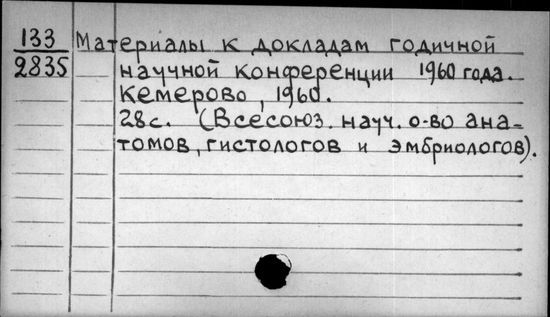 133 Материалы к докладам годичной
2835 научной конференции 1960 года.
Кемерово, 1960.
28с. (Всесоюз. науч. о-во ана-
томов, гистологов и эмбриологов).